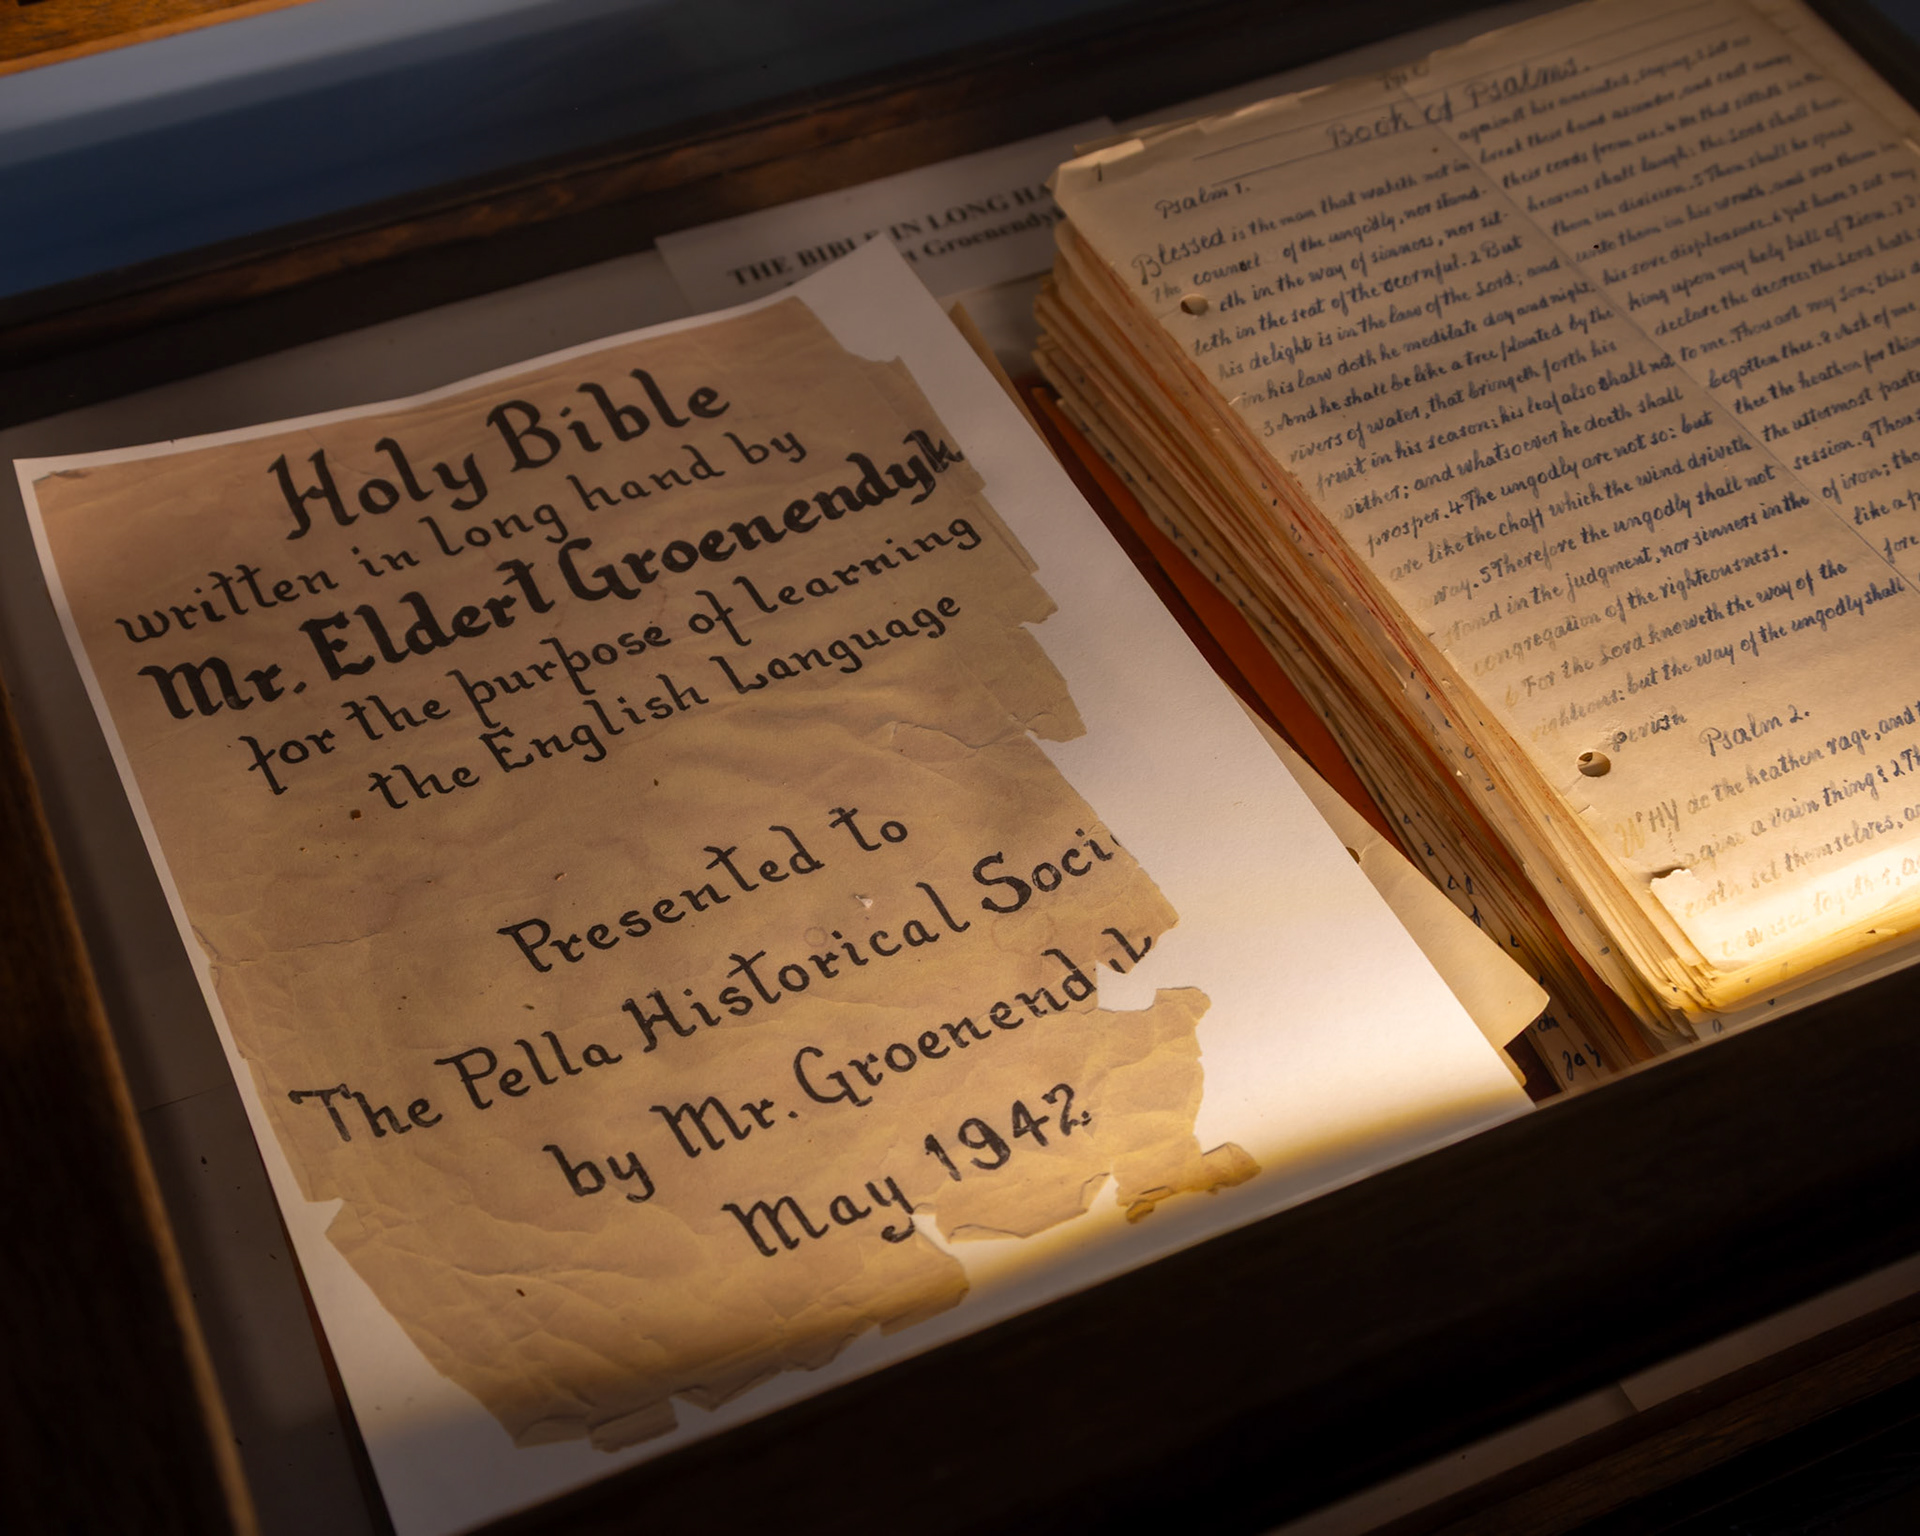 THE BIBLE IN LONG HA
Groenendyk
Holy Bible
written in long hand by
Mr. Eldert Groenendyk
for the purpose of learning
the English Language
Presented to
The Pella Historical Soci
by Mr. Groenendyk
May 1942
The
Book of Psalms.
1
Psalm 1.
Blessed is the man that walketh not in
the counsel of the ungodly, nor stand-
eth in the way of sinners, nor sit-
teth in the seat of the scornful. 2 But
his delight is in the law of the Lord; and
in his law doth he meditate day and night.
3 And he shall be like a tree planted by the
rivers of water, that bringeth forth his
fruit in his season; his leaf also shall not
wither; and whatsoever he doeth shall
prosper. 4 The ungodly are not so: but
are like the chaff which the wind driveth
away. 5 Therefore the ungodly shall not
stand in the judgment, nor sinners in the
congregation of the righteousness.
6 For the Lord knoweth the way of the
righteous: but the way of the ungodly shall
perish
Psalm 2.
WHY do the heathen rage, and t
imagine a vain thing? 2 Th
earth set themselves, a
counsel together, a
against his anointed, saying, 3 Let us
break their band asunder, and cast away
their cords from us. 4 He that sitteth in the
heavens shall laugh: the Lord shall have
them in division. 5 Then shall he speak
unto them in his wrath, and vex them in
his sore displeasure. 6 Yet have I set my
king upon my holy hill of Zion. 7 I
declare the decree: the Lord hath s
to me. Thou art my Son; this d
begotten thee. 8 Ask of me
thee the heathen for thin
the uttermost parts
session. 9 Thou
of iron; tho
like a p
fore